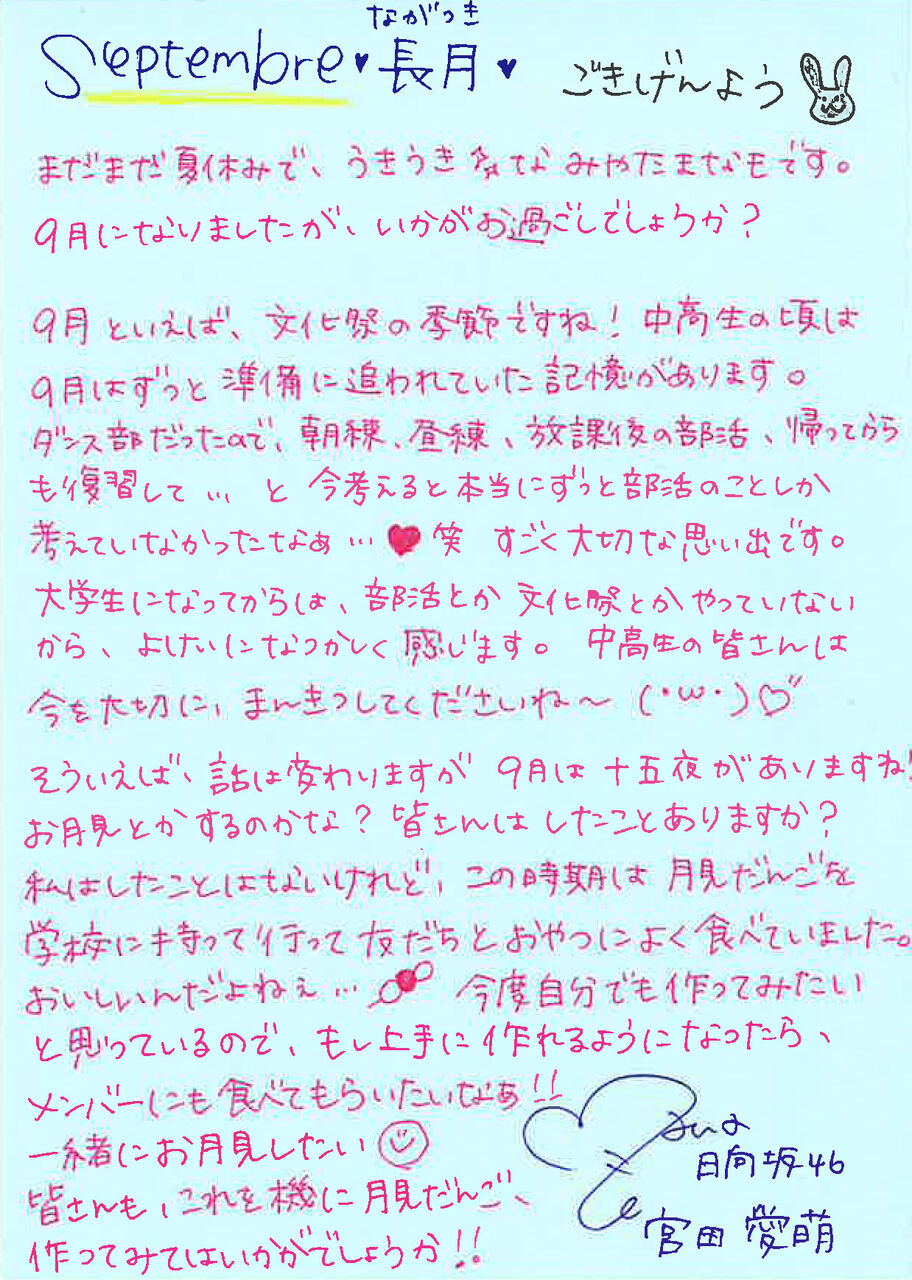 ながつき
Septembre♥長月♥ ごきげんよう
まだまだ夏休みで、うきうき気分な みやたまなもです。
9月になりましたが、いかがお過ごしでしょうか？
9月といえば、文化祭の季節ですね！中高生の頃は
9月はずっと準備に追われていた記憶があります。
ダンス部だったので、朝練、昼練、放課後の部活、帰ってからも
も復習して… と 今考えると本当にずっと部活のことしか
考えていなかったなぁ…♥笑 すごく大切な思い出です。
大学生になってからは、部活とか文化祭とかやっていない
から、よけいになつかしく感じます。中高生の皆さんは
今を大切に、まんきつしてくださいね〜 (・ω・)♡
そういえば、話は変わりますが 9月は十五夜がありますね！
お月見とかするのかな？皆さんはしたことありますか？
私はしたことはないけれど、この時期は月見だんごを
学校に持って行って友だちとおやつによく食べていました。
おいしいんだよねぇ… 今度自分でも作ってみたい
と思っているので、もし上手に作れるようになったら、
メンバーにも食べてもらいたいなぁ!!
一緒にお月見したい☺
皆さんも、これを機に月見だんご、
作ってみてはいかがでしょうか!!
日向坂46
宮田 愛萌